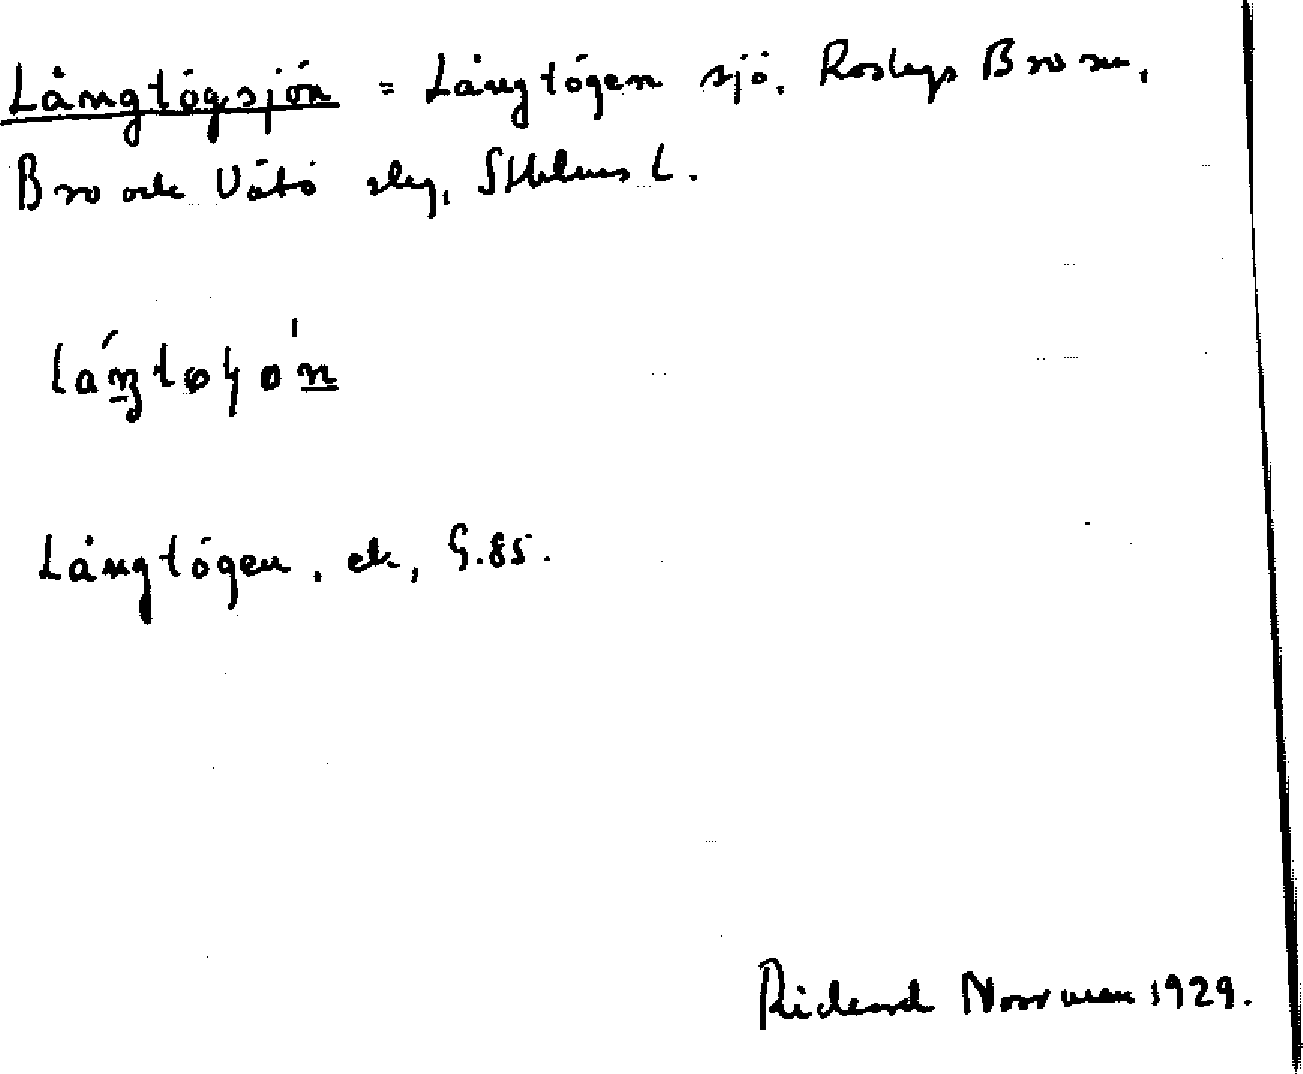 Långtögsjön = Långtögen sjö. Roslags Bro sn,
Bro och Vätö skg, Sthlms L.
Långtögen, ek, G.85.
Rickard Norrman 1929.